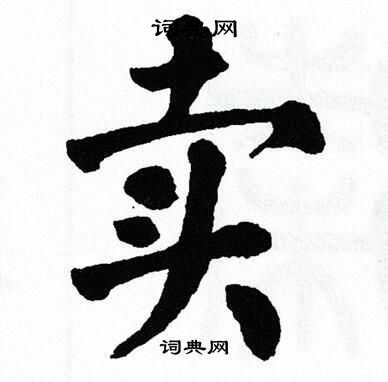 词典网
卖
词典网